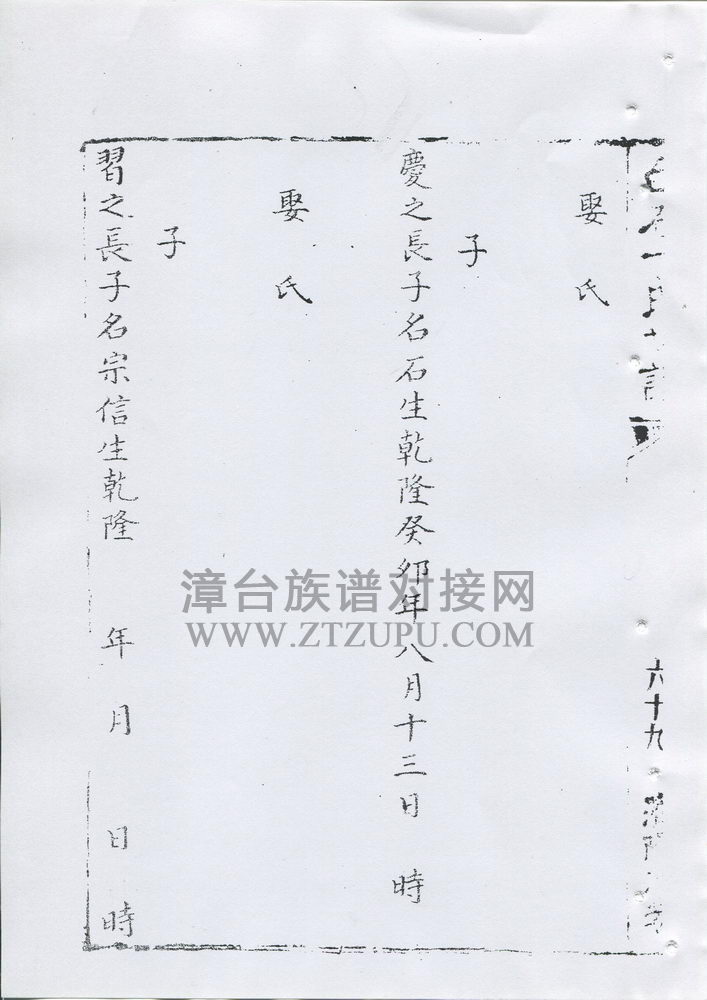 六十九
娶 氏
子
慶之長子名石生乾隆癸卯年八月十三日 時
娶 氏
子
習之長子名宗信生乾隆 年 月 日 時
漳台族谱对接网
WWW.ZTZUPU.COM